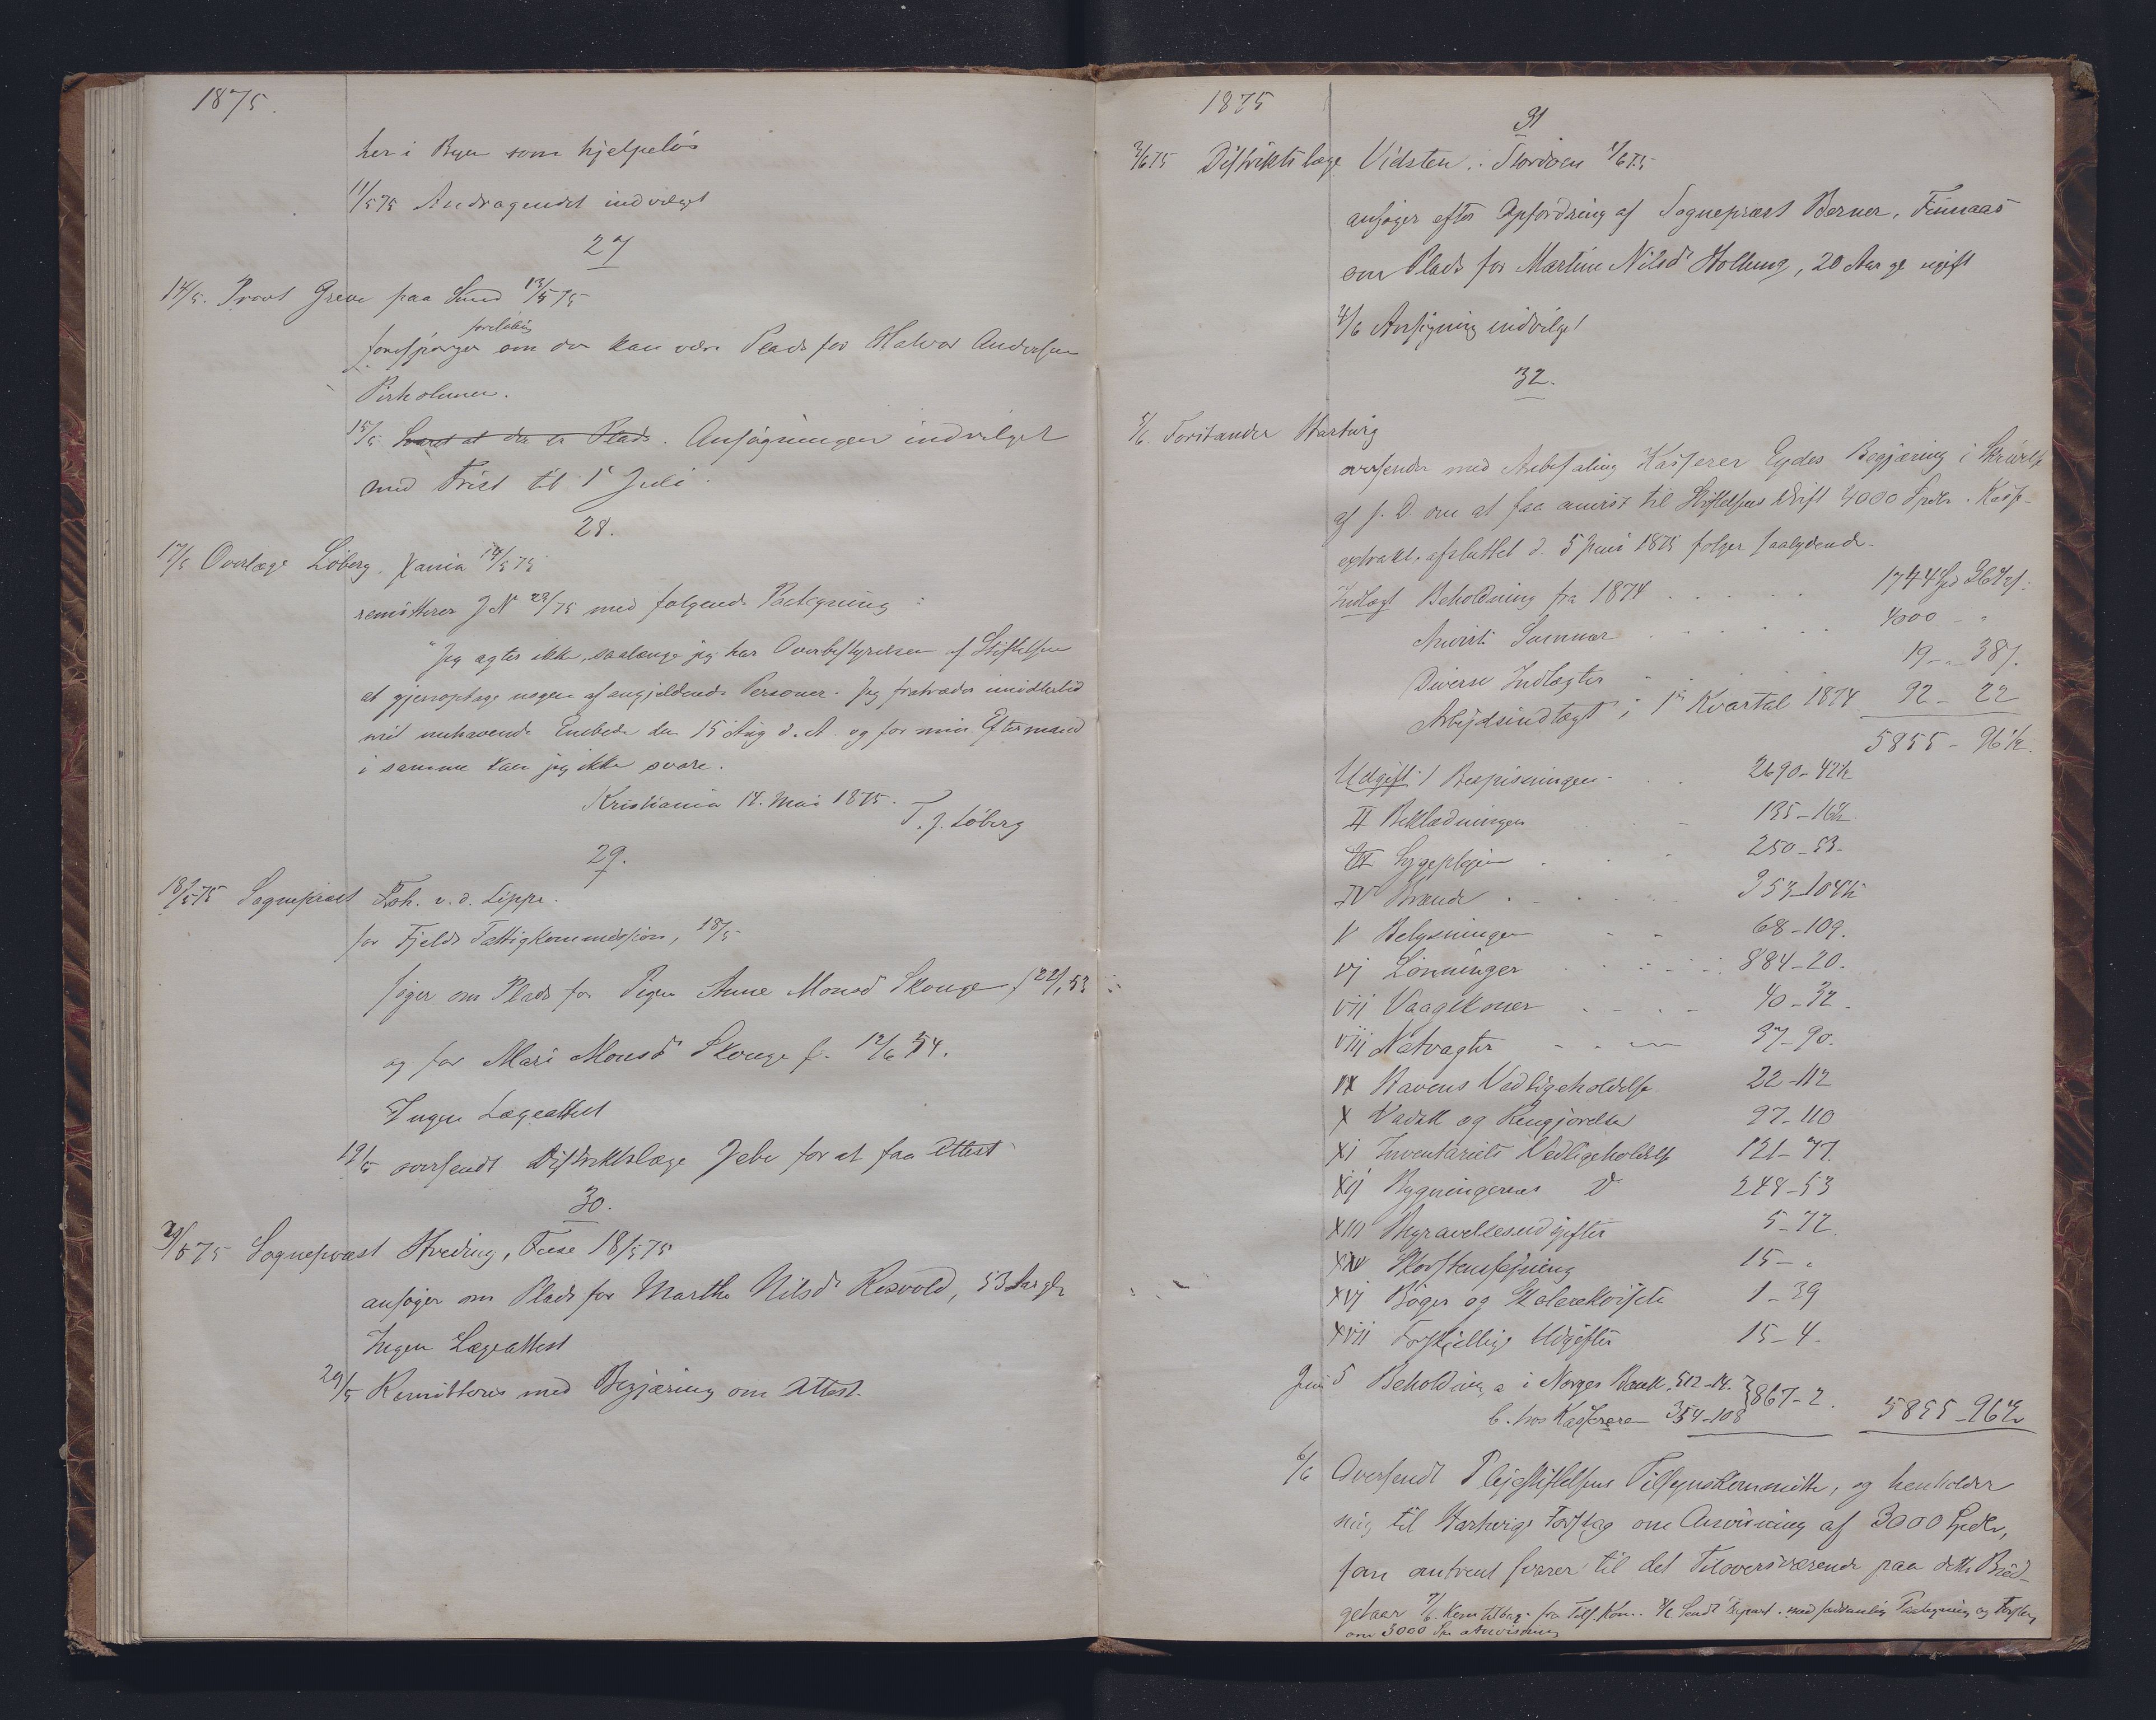 1875.
her i Byen som hjelpeløs
11/5 75 Andragendet indvilget
27
14/5. Provst Greve paa Sund 13/5 75
foreløbig
forespørger om der kan være Plads for Halvor Andersen
Pirholmen.
15/5 Svaret at der er Plads. Ansøgningen indvilget
med Frist til 1' Juli.
28.
17/5 Overlæge Løberg. Xania 14/5 75
remitterer J N 23/75 med følgende Paategning:
"Jeg agter ikke, saalænge jeg har Overbestyrelsen af Stiftelsen
at gjenoptage nogen af angjeldende Personer. Jeg fratræder imidlertid
mit nuhavende Embede den 15 Aug d. A. og for min Eftermand
i samme kan jeg ikke svare.
Kristiania 14. Mai 1875.
T. J. Løberg
29.
18/5 75 Sogneprest Joh. v. d. Lippe.
for Fjelds Fattigkommission, 18/5
søger om Plads for Pigen Anne Monsd Skouge f 22/1 53
og for Mari Monsd Skouge f. 12/6 54.
Ingen Lægeattest
19/5 oversendt Distriktslæge Jebe for at faa Attest
30.
29/5 75 Sogneprest Hreding, Fuse 18/5 75
ansøger om Plads for Marthe Nilsd Rosvold, 53 Aar gl.
Ingen Lægeattest
29/5 Remitteres med Begjæring om Attest.
1875
31
3/6 75 Distriktslæge Vidsten. Stordøen 1/6 75
ansøger efter Opfordring af Sogneprest Berner, Finnaas
om Plads for Martin Nilsd Hollung, 20 Aar gl ugift
4/6 Ansøgning indvilget
32.
5/6. Forstander Hartwig
oversender med Anbefaling Kasserer Eydes Begjæring i Skrivelse
af s. D. om at faa anvist til Stiftelsens Drift 4000 Spdlr. Kasse-
extrakt, afsluttet d. 5 Juni 1875 følger saalydende.
Indtægt Beholdning fra 1874 . . . . . 1744 Spd
Anvist Summer . . . . . 4000 - "
Diverse Indtægter 19 - 38 1/2
Arbejdsindtægt i 1ste Kvartal 1874 92 - 22
5855 - 96 1/2.
Udgift: I Bespisningen . . 2690 - 42 1/2
II Beklædningen . . 135 - 16 1/2
III Sygeplejen . . 250 - 53
IV Brænde . . . 353 - 104 1/2
V Belysningen - - 68 - 109.
VI Lønninger . . . . 884 - 20.
VII Vaagekoner . . . 40 - 32
VIII Natvagter - - - 37 - 90.
IX Havens Vedligeholdelse 22 - 112
X Vadsk og Rengjørelse 97 - 110
XI Inventariets Vedligeholdelse 121 - 77.
XII Bygningernes D 248 - 53
XIII Begravelsesudgifter 5 - 72.
XIV Skorstensfejning 15 - "
XVI Bøger og Skolerekvisita 1 - 39
XVII Forskjellige Udgifter 15 - 4.
Juni 5 Beholdning a i Norges Bank 512 - 14. } 867 - 2. 5855 - 96 1/2
b. hos Kassereren 354 - 108
6/6 Oversendt Plejestiftelsens Tilsynskommitte, og henholder
mig til Hartwigs Forslag om Anvisning af 3000 Spdlr,
som omtrent svarer til det Tiloversværende paa dette Bud-
getaar 7/6. Kom tilbage fra Tils. Kom. 8/6 Sendt Depart. med saadan Paategning og Forslag
om 3000 Spd Anvisning